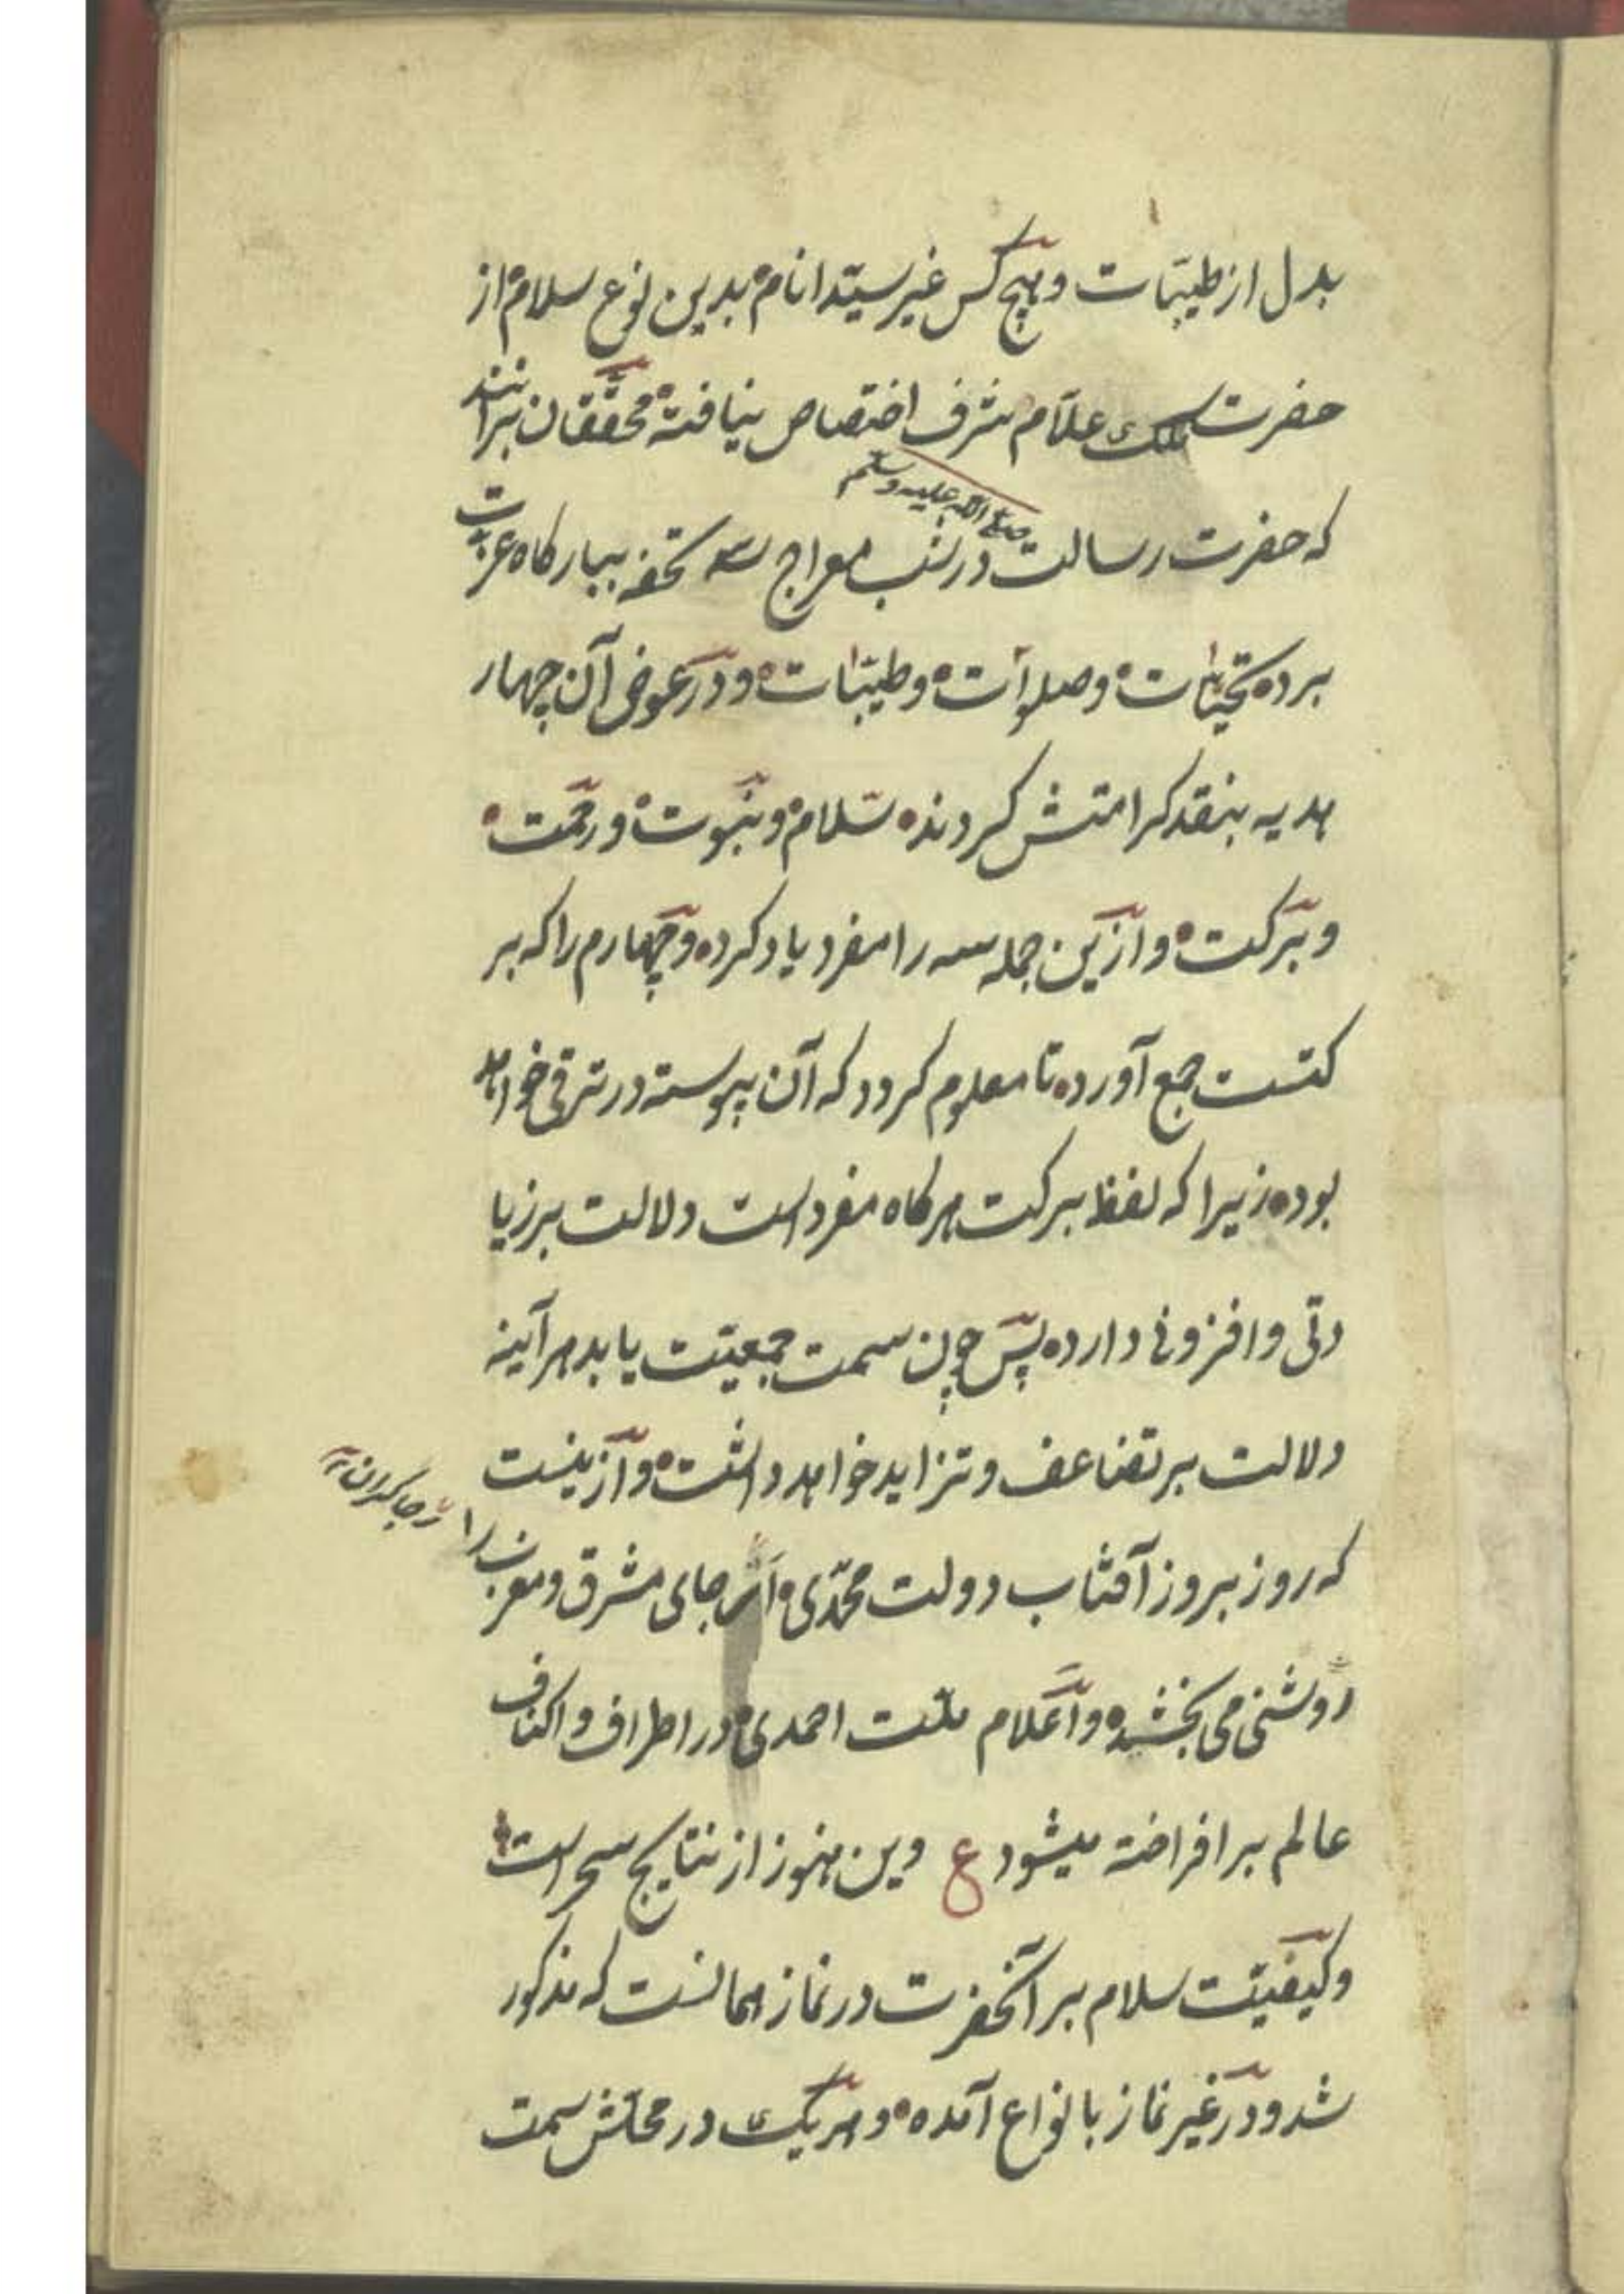 بدل از طیبّات و هیچ کس غیر سیّد انام بدین نوع سلام از
حضرت ملک علّام شرف اختصاص نیافته محقّقان برانند
صلی الله علیه وسلم
که حضرت رسالت در شب معراج سه تحفه ببارکاه عزت
برده تحیّات و صلوات و طیبّات و در عوض آن چهار
هدیه بنقد کرامتش کردند سلام و نبوت و رحمت
و برکت و ازین جمله سه را مفرد یاد کرده و چهارم را که بر
کتست جمع آورده تا معلوم کردد که آن پیوسته در ترقی خواهد
بود زیرا که لفظ برکت هرکاه مفرد است دلالت بر زیا
دتی و افزونی دارد پس چون سمت جمعیّت یابد هرآینه
دلالت بر تضاعف و تزاید خواهد داشت و ازینست
که روز بروز آفتاب دولت محمّدی اثر جای مشرق و مغرب را
روشنی می بخشد و اعلام ملّت احمدی در اطراف و اکناف
عالم بر افراخته میشود ع وین هنوز از نتایج سحر است
و کیفیّت سلام بر آنحضرت در نماز همانست که مذکور
شد و در غیر نماز بانواع آمده و هریک در محلّش سمت